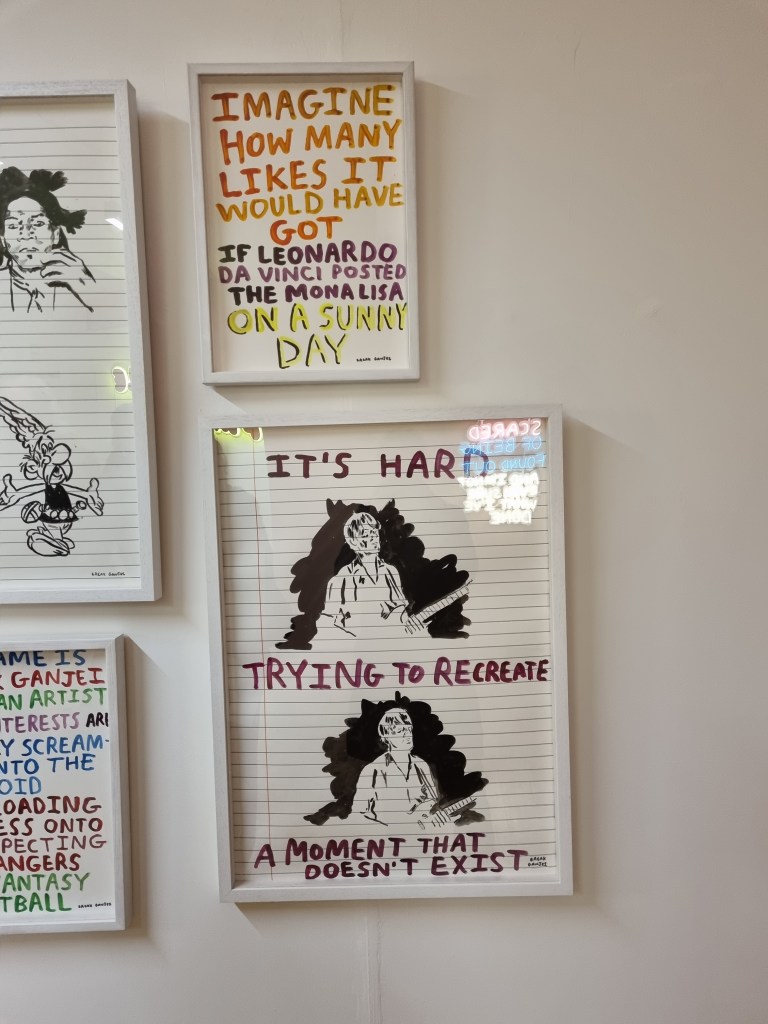 IMAGINE
HOW MANY
LIKES IT
WOULD HAVE
GOT
IF LEONARDO
DA VINCI POSTED
THE MONA LISA
ON A SUNNY
DAY
IT'S HARD
TRYING TO RECREATE
A MOMENT THAT
DOESN'T EXIST
AME IS
GANJEI
AN ARTIST
TERESTS ARE
Y SCREAM-
NTO THE
OID
OADING
ESS ONTO
PECTING
ANGERS
FANTASY
TBALL
SCARED
OF BEING
FOUND OUT